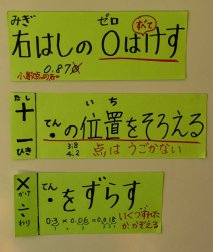 みぎ ゼロ すべて
右はしの0はけす
0.870
小数点の右
たし
＋
－
ひき
いち
てん
・の位置をそろえる
3.8
4.2
点はうごかない
×
かけ
÷
わり
てん
・をずらす
0.3×0.06=0.018
いくつずれた
か かぞえる